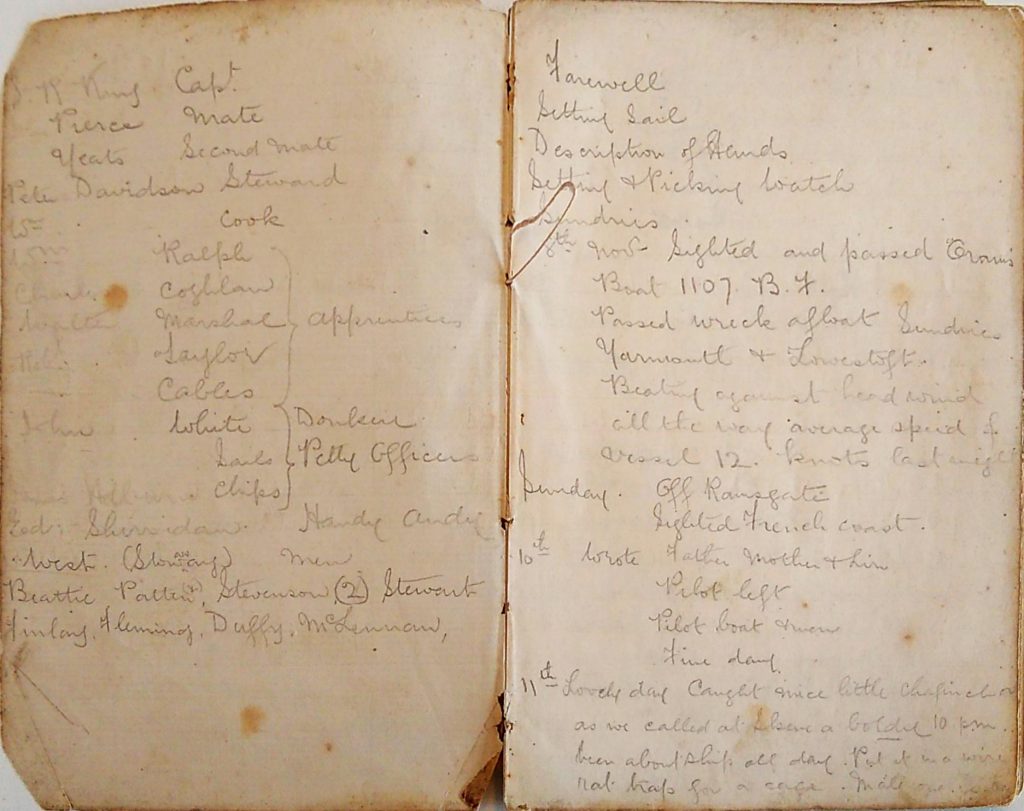 J. R. King Capt.
Pierce Mate
Yeats Second Mate
Peter Davidson Steward
Wm Cook
Wm Ralph
Charli Coghlan
Walter Marshal Apprentices
Robt Saylor
Cables
John White Donkey
Sails Petty Officers
Chips
Ed: Sherridan Handy Andy
West. (Stowaway) Men
Beattie Patten, Stevenson, (2) Stewart
Finlay, Fleming, Duffy, McLennan,
Farewell
Setting Sail
Description of Hands
Setting & Picking Watch
Sundries
8th Nov Sighted and passed
Boat 1107. B.F.
Passed wreck afloat Sundries
Yarmouth & Lowestoft.
Beating against head wind
all the way average speed of
vessel 12. knots last night
Sunday. Off Ramsgate
Sighted French coast.
10th Wrote Father Mother &
Pilot left
Pilot boat & men
Fine day
11th Lovely day Caught nice little chafinch or
as we called at a boldie 10 p.m.
been about ship all day. Put it in a wire
rat trap for a cage. Made